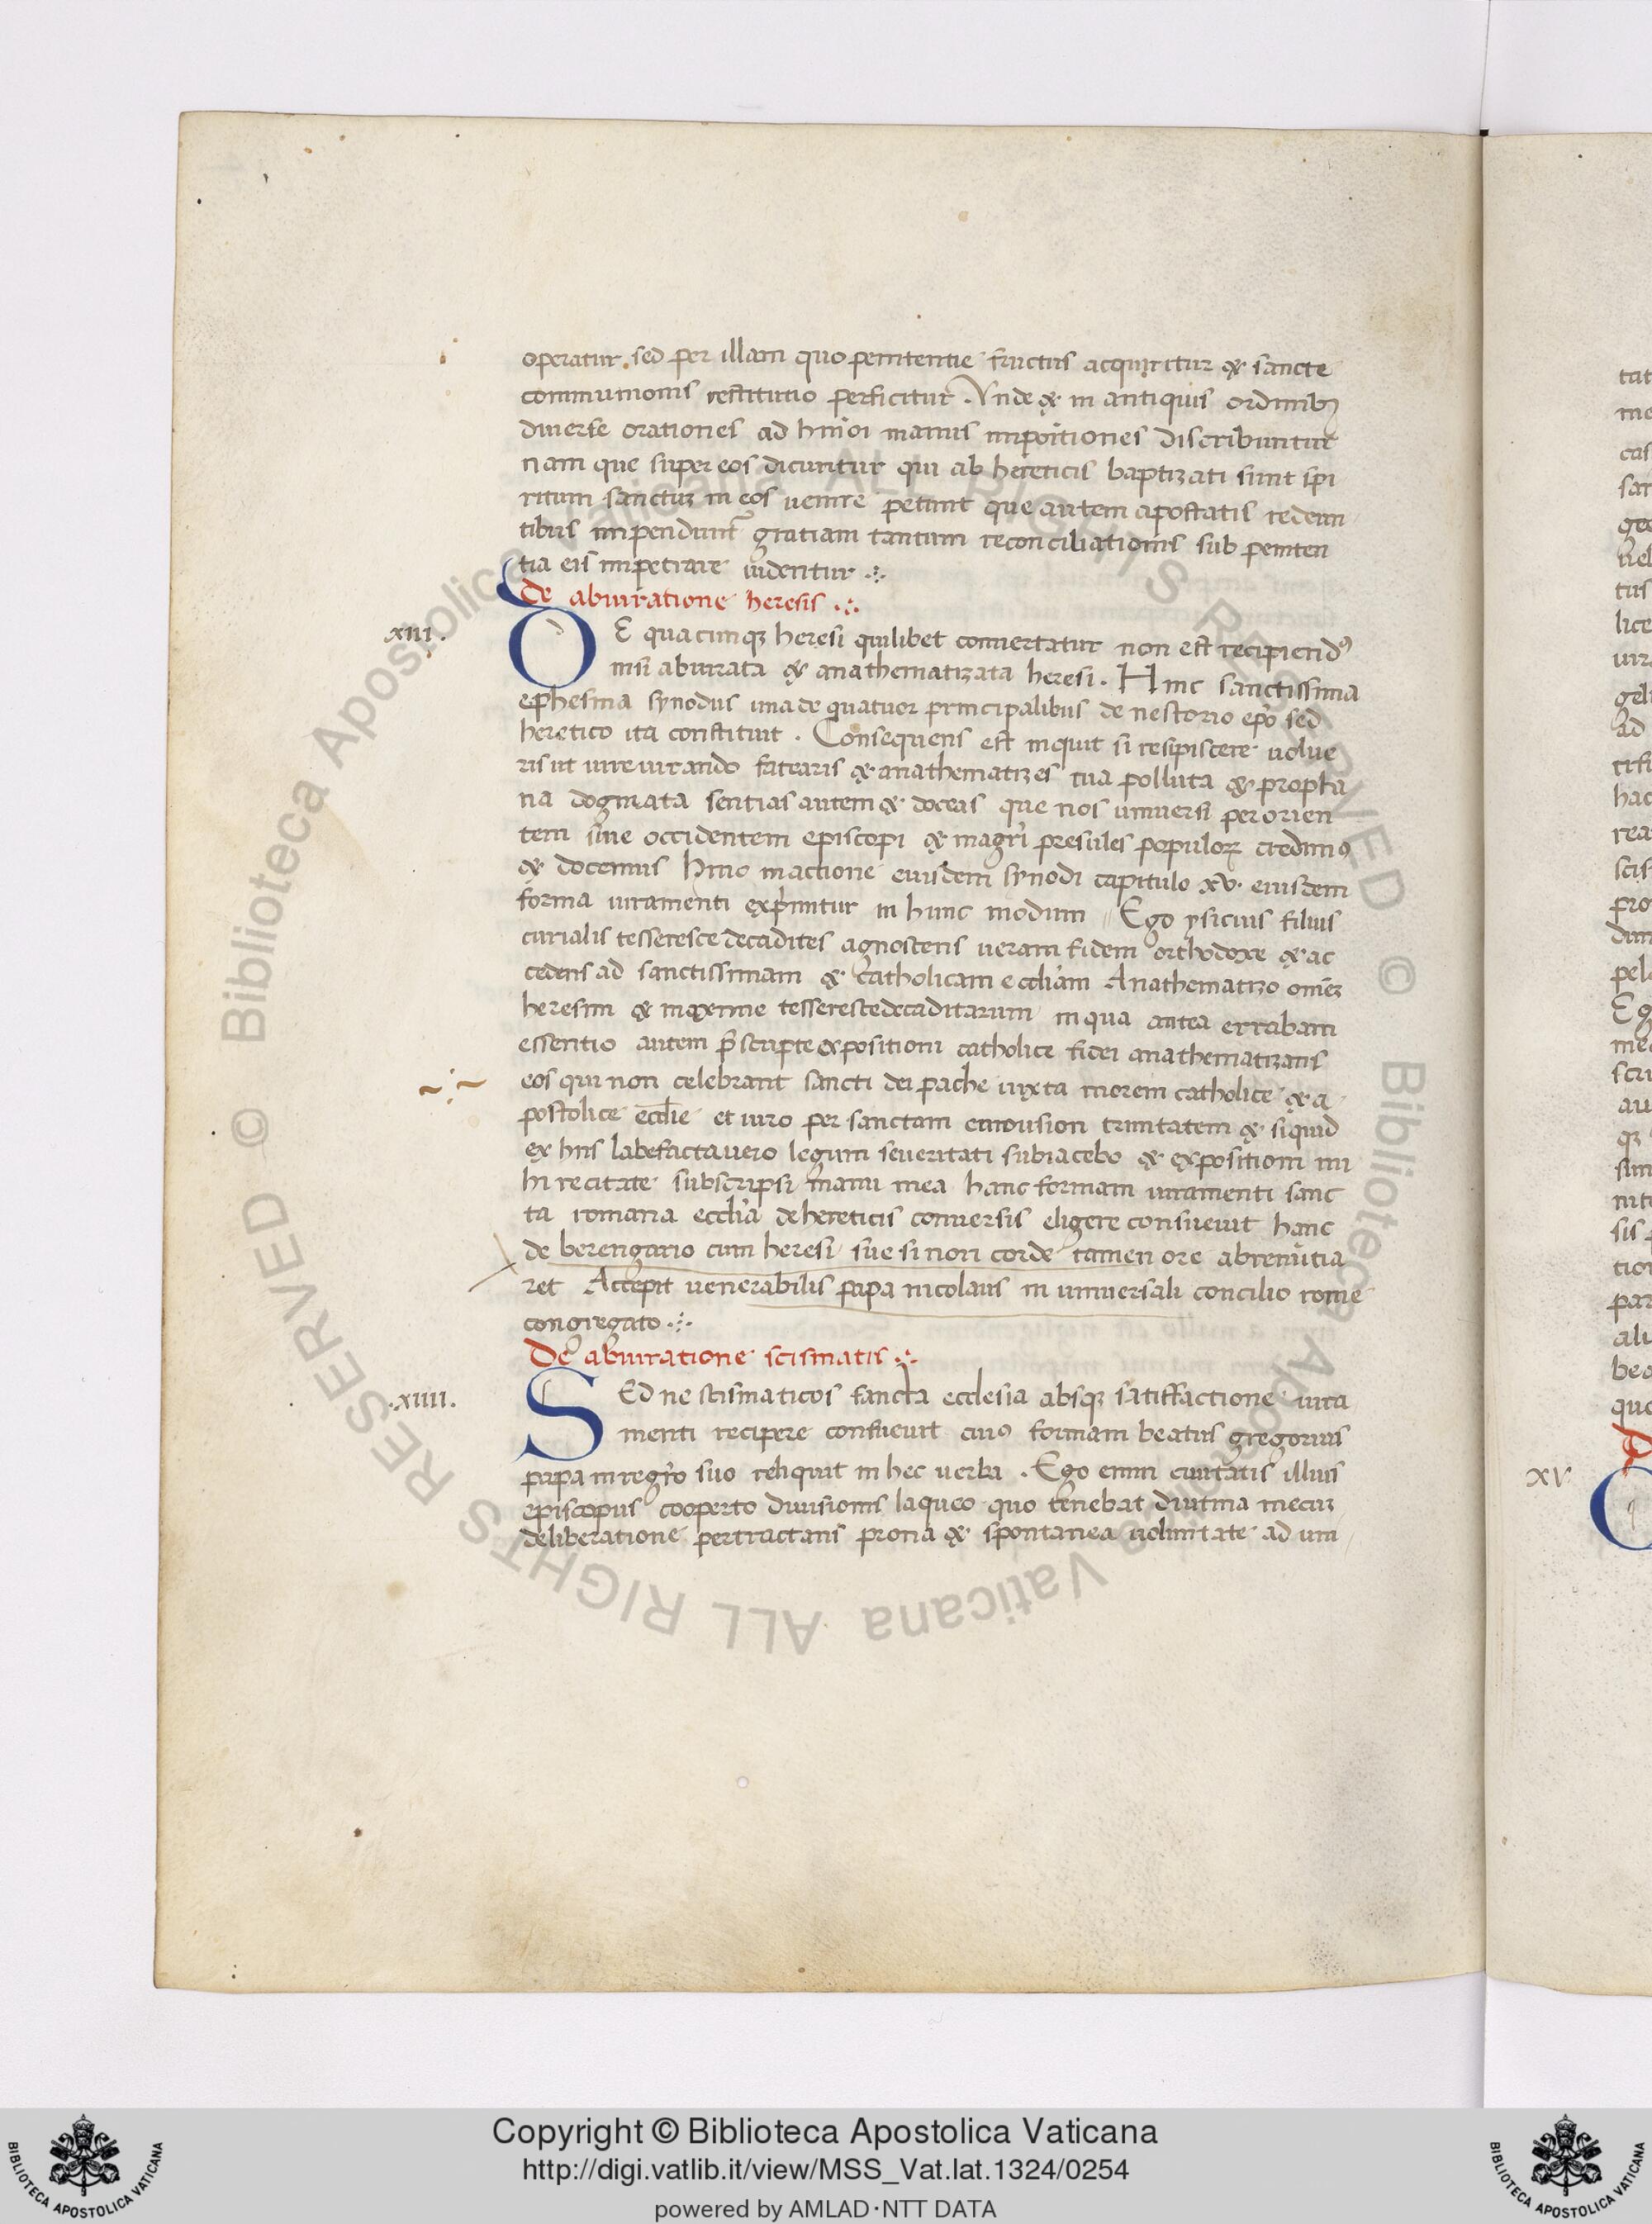 operatur. sed per illam quo penitentie fructus acquiritur & sancte
communionis restitutio perficitur. Vnde & in antiquis ordinibꝫ
diuerse orationes ad hmoi manus impoitiones discribuntur
nam que super eos dicuntur qui ab hereticis baptizati sunt spi
ritum sanctuz in eos uenire petunt que autem apostatis redeun
tibus impendunt̃ gratiam tantum reconciliationis sub peniten
tia eis impetrare uidentur
de abiuratione heresis
xiii.
E quacunqꝫ heresi quilibet conuertatur non est recipiendꝰ
nisi abiurata & anathematizata heresi. Hinc sanctissima
ephesina synodus una de quatuor principalibus de nestorio ep̃o sed
heretico ita constituit. Consequens est inquit si resipiscere uolue
ris ut iureiurando fatearis & anathematizes tua polluta & propha
na dogmata sentias autem & doceas que nos uniuersi per orien
tem siue occidentem episcopi & magr̃i presules populoꝝ credimꝰ
& docemus hinc in actione eiusdem synodi capitulo xv. eiusdem
forma iuramenti exp̃mitur in hunc modum Ego ysicius filius
curialis tesserescedecadites agnoscens ueram fidem orthodoxe & ac
cedens ad sanctissimam & catholicam eccl̃iam Anathematizo om̃ez
heresim & maxime tesserescedecaditarum in qua antea errabam
essentio autem p̃scripte expositioni catholice fidei anathematizans
eos qui non celebrant sancti dei pache iuxta morem catholice & a
postolice eccl̃ie et iuro per sanctam emousion trinitatem & siquid
ex hiis labefactauero legum seueritati subiacebo & expositioni mi
hi recitate subscripsi manu mea hanc formam iuramenti sanc
ta romana eccl̃ia de hereticis conuersis eligere consueuit hanc
de berengario cum heresi sue si non corde tamen ore abrenũtia
ret Accepit uenerabilis papa nicolaus in uniuersali concilio rome
congregato
De abiuratione scismatis
.xiiii.
SEd ne scismaticos sancta ecclesia absqꝫ satisfactione iura
menti recipere consueuit cuiꝰ formam beatus gregorius
papa in regr̃o suo reliquit in hec uerba. Ego enim ciuitatis illius
episcopus cooperto diuisionis laqueo quo tenebat diutina mecuz
deliberatione pertractans prona & spontanea uoluntate ad uni
XV
Copyright © Biblioteca Apostolica Vaticana
http://digi.vatlib.it/view/MSS_Vat.lat.1324/0254
powered by AMLAD·NTT DATA